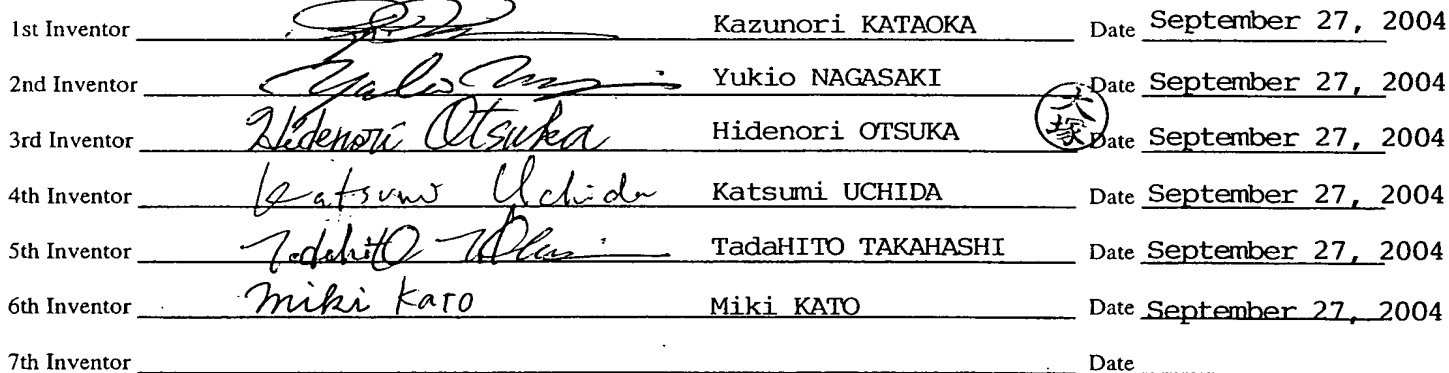 1st Inventor Kazunori KATAOKA Date September 27, 2004
2nd Inventor Yukio NAGASAKI Date September 27, 2004
3rd Inventor Hidenori Otsuka Hidenori OTSUKA 大塚 Date September 27, 2004
4th Inventor Katsumi Uchida Katsumi UCHIDA Date September 27, 2004
5th Inventor TadaHITO TAKAHASHI Date September 27, 2004
6th Inventor Miki Kato Miki KATO Date September 27, 2004
7th Inventor Date